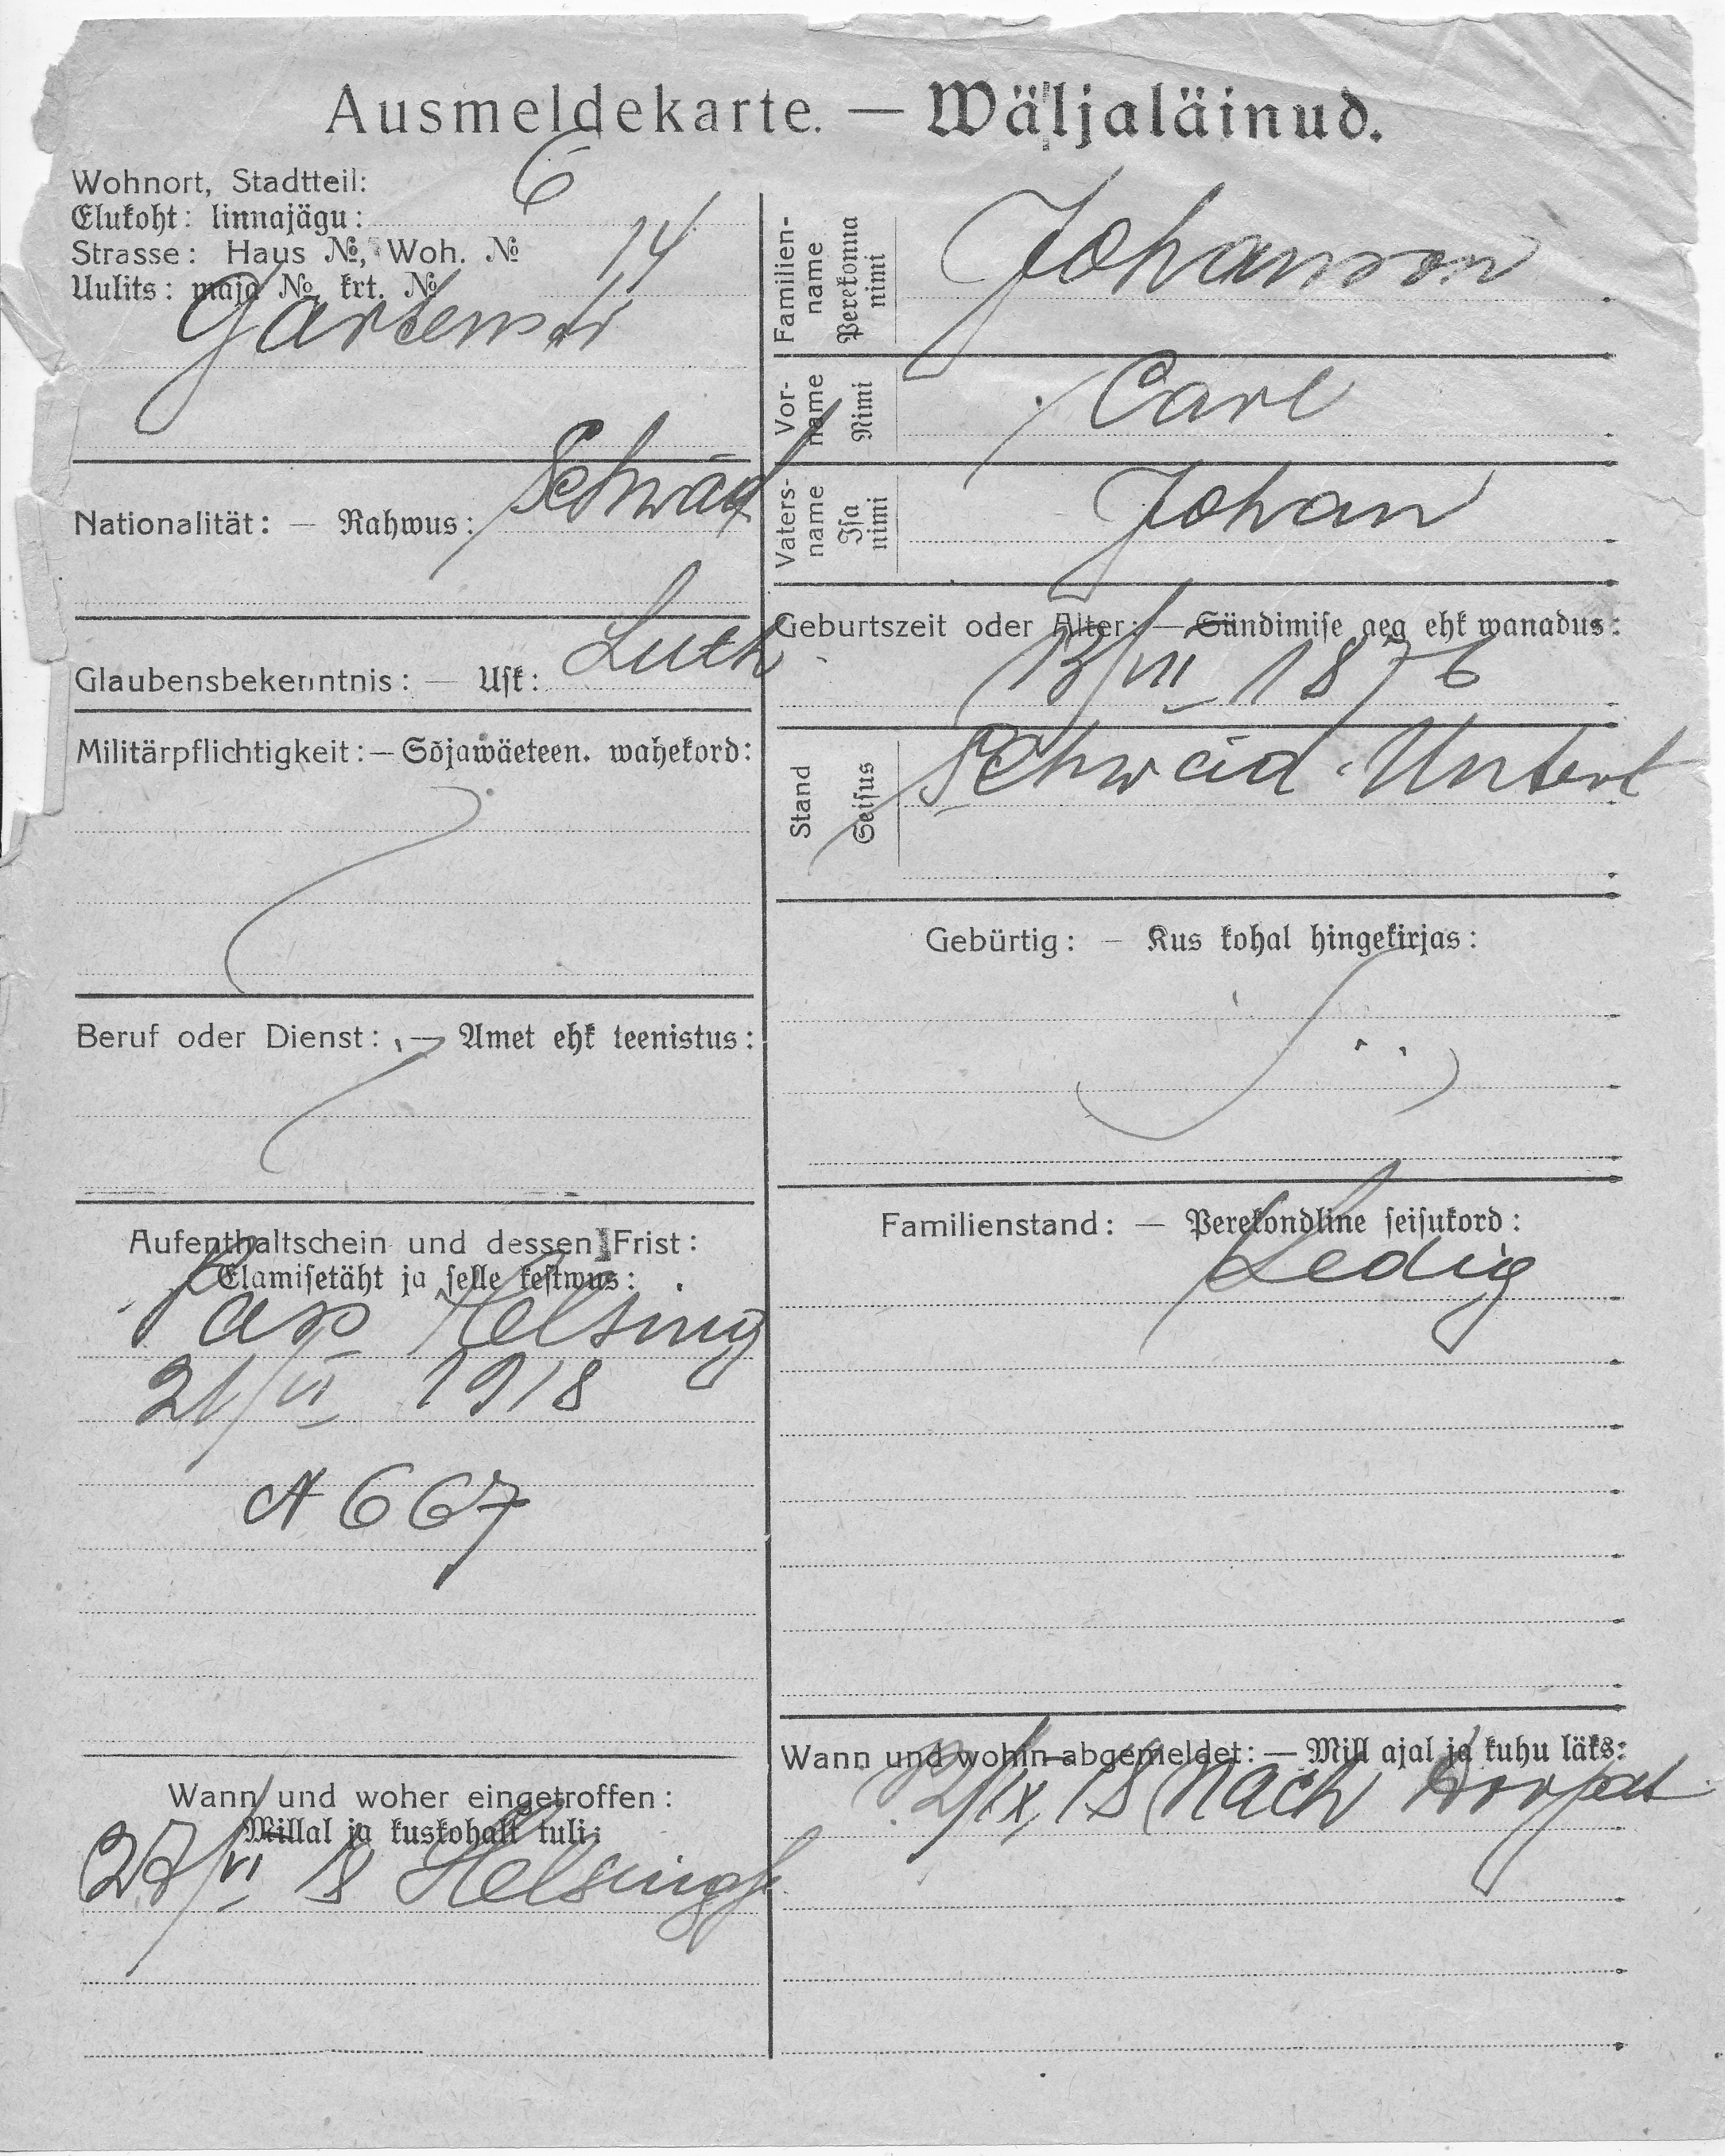 Ausmeldekarte. — Wäljaläinud.
Wohnort, Stadtteil:
Elukoht: linnajägu: 6
Strasse: Haus №, Woh. № 14
Uulits: maja №, krt. №
Gartenstr
Nationalität: — Rahwus: Schwäd
Glaubensbekenntnis: — Usk: Luth
Militärpflichtigkeit: — Sõjawäeteen. wahekord:
Beruf oder Dienst: — Amet ehk teenistus:
Aufenthaltschein und dessen Frist:
Elamisetäht ja selle kestwus:
Pass Helsing
21/VI 1918
№ 667
Wann und woher eingetroffen:
Millal ja kuskohalt tuli:
27/VI 18 Helsingf
Familien-
name
Perekonna
nimi
Johanson
Vor-
name
Nimi
Carl
Vaters-
name
Isa
nimi
Johan
Geburtszeit oder Alter: — Sündimise aeg ehk wanadus:
13/VII 1876
Stand
Seisus
Schwäd. Untert
Gebürtig: — Kus kohal hingekirjas:
Familienstand: — Perekondline seisukord:
Ledig
Wann und wohin abgemeldet: — Mill ajal ja kuhu läks:
2/IX 18 Nach Dorpat